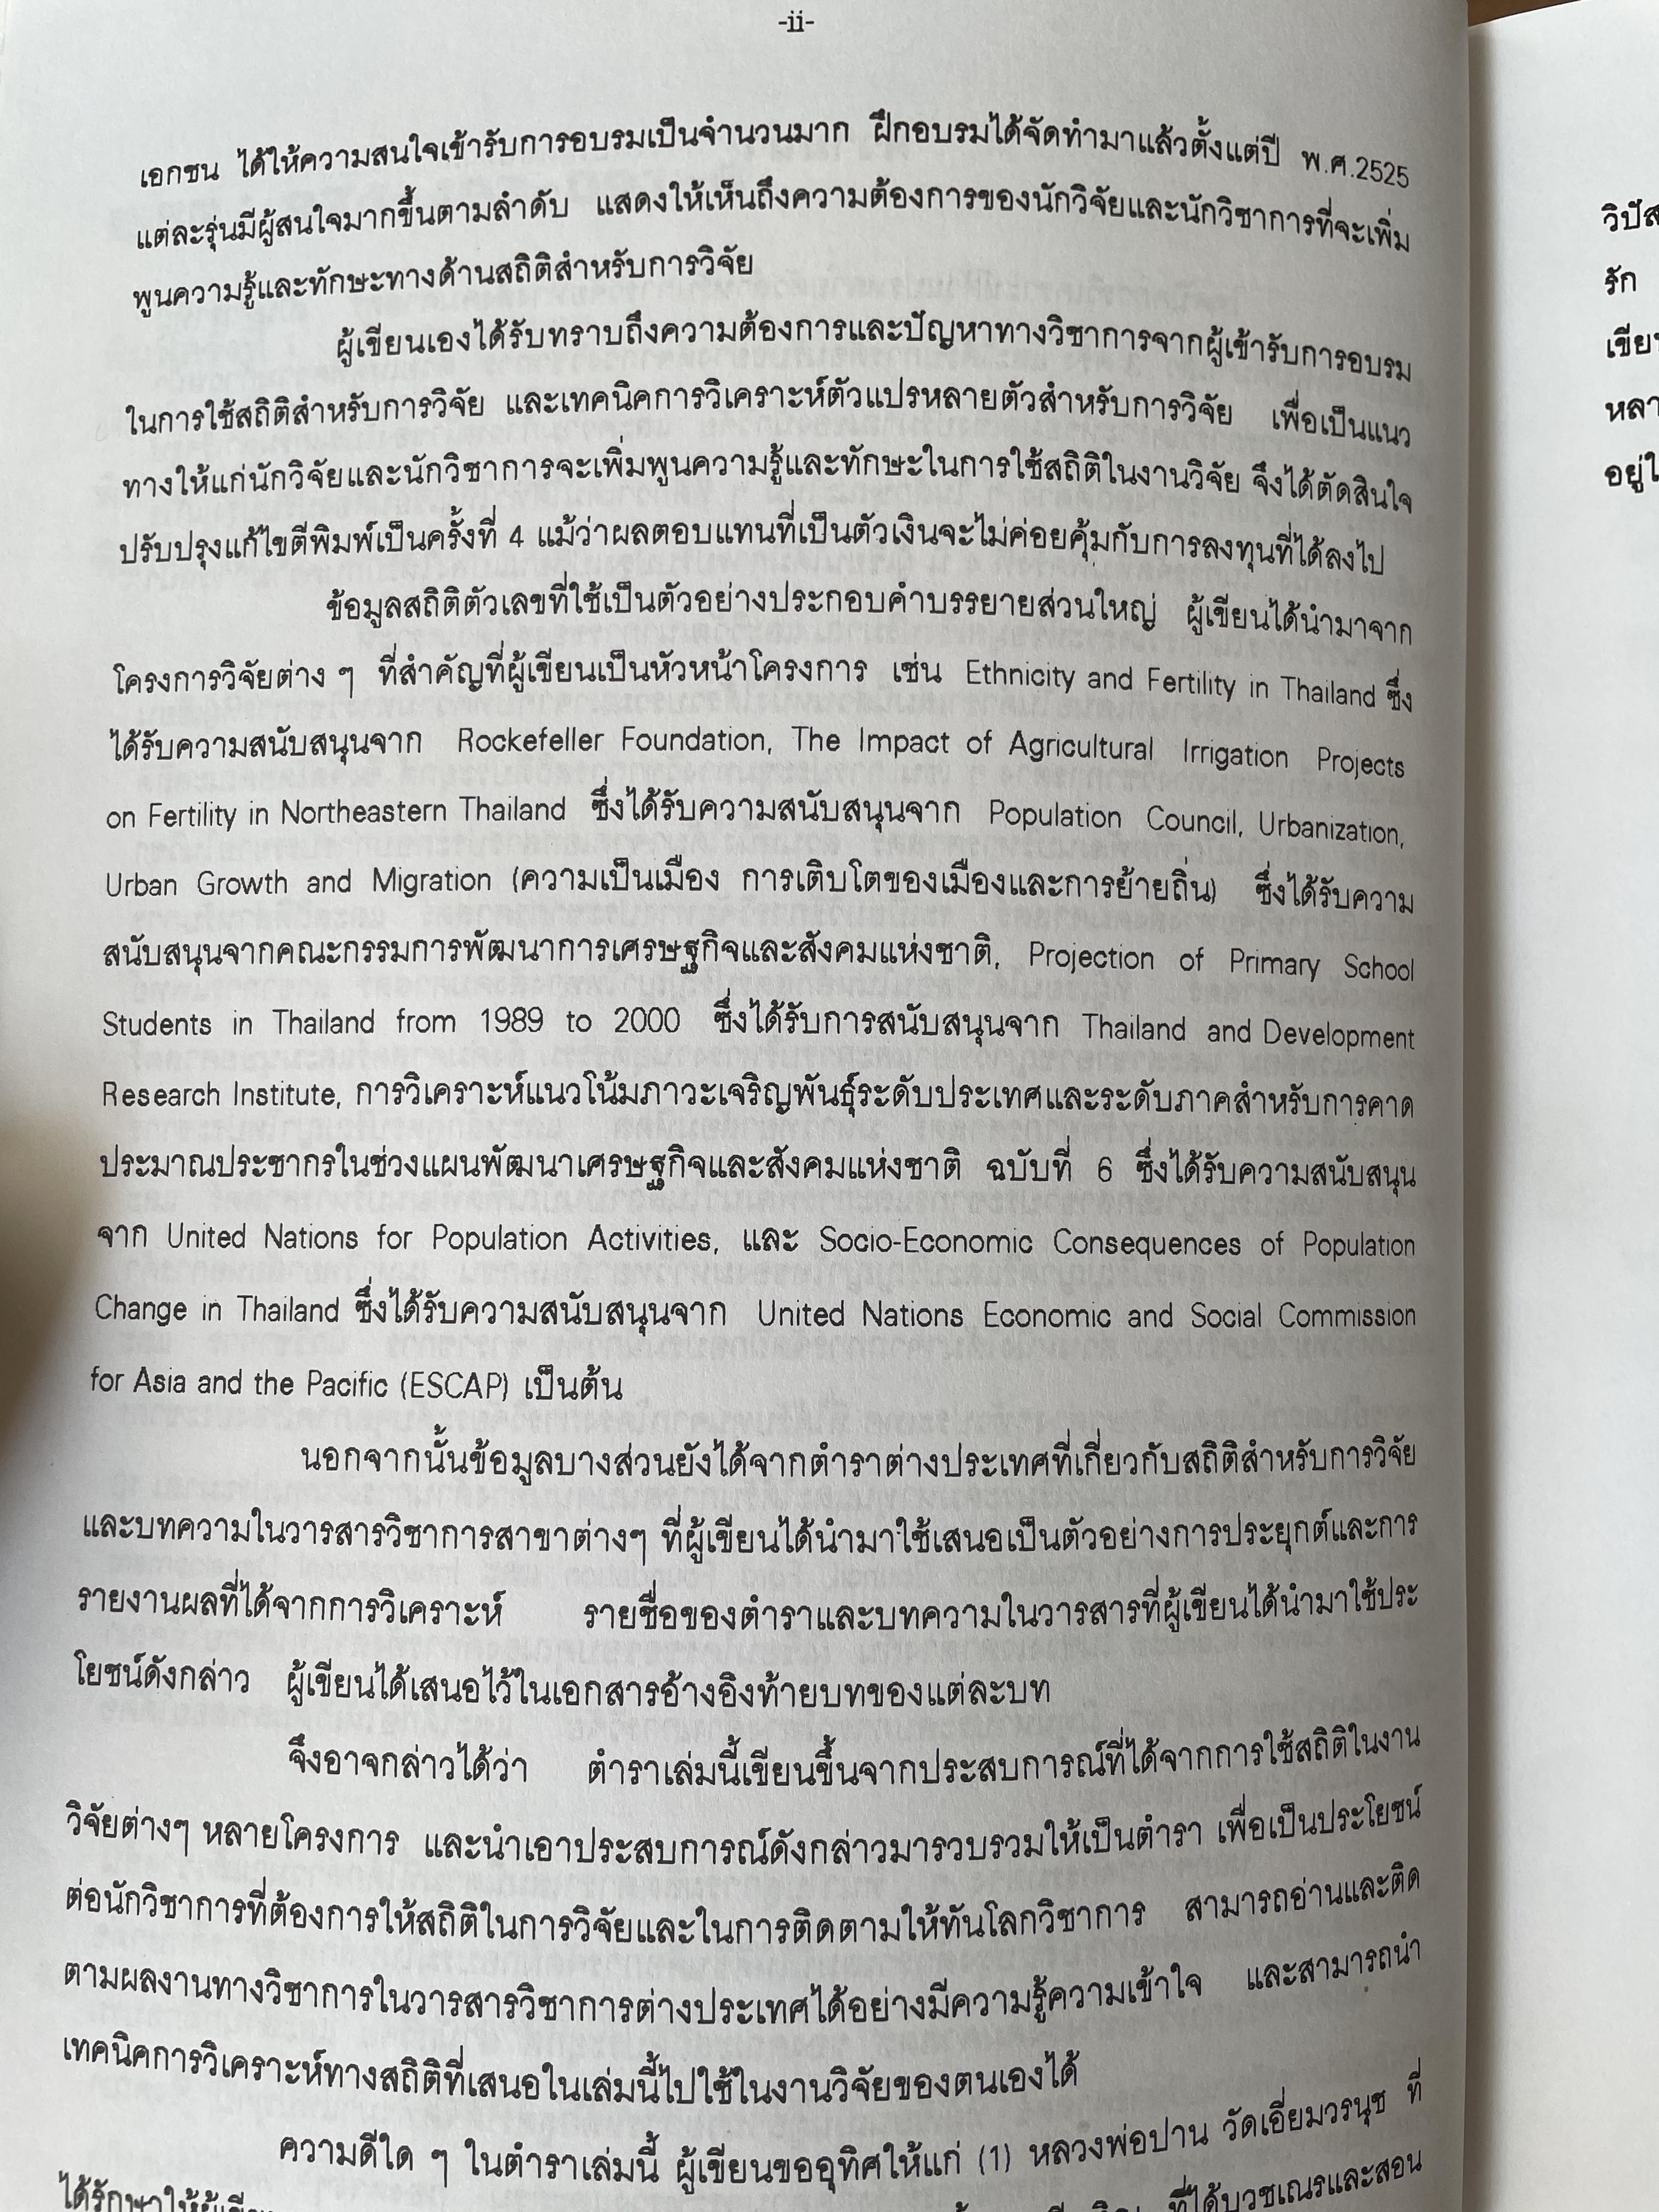 -ii-
เอกชน ได้ให้ความสนใจเข้ารับการอบรมเป็นจำนวนมาก ฝึกอบรมได้จัดทำมาแล้วตั้งแต่ปี พ.ศ.2525
แต่ละรุ่นมีผู้สนใจมากขึ้นตามลำดับ แสดงให้เห็นถึงความต้องการของนักวิจัยและนักวิชาการที่จะเพิ่ม
พูนความรู้และทักษะทางด้านสถิติสำหรับการวิจัย
ผู้เขียนเองได้รับทราบถึงความต้องการและปัญหาทางวิชาการจากผู้เข้ารับการอบรม
ในการใช้สถิติสำหรับการวิจัย และเทคนิคการวิเคราะห์ตัวแปรหลายตัวสำหรับการวิจัย เพื่อเป็นแนว
ทางให้แก่นักวิจัยและนักวิชาการจะเพิ่มพูนความรู้และทักษะในการใช้สถิติในงานวิจัย จึงได้ตัดสินใจ
ปรับปรุงแก้ไขตีพิมพ์เป็นครั้งที่ 4 แม้ว่าผลตอบแทนที่เป็นตัวเงินจะไม่ค่อยคุ้มกับการลงทุนที่ได้ลงไป
ข้อมูลสถิติตัวเลขที่ใช้เป็นตัวอย่างประกอบคำบรรยายส่วนใหญ่ ผู้เขียนได้นำมาจาก
โครงการวิจัยต่าง ๆ ที่สำคัญที่ผู้เขียนเป็นหัวหน้าโครงการ เช่น Ethnicity and Fertility in Thailand ซึ่ง
ได้รับความสนับสนุนจาก Rockefeller Foundation, The Impact of Agricultural Irrigation Projects
on Fertility in Northeastern Thailand ซึ่งได้รับความสนับสนุนจาก Population Council, Urbanization,
Urban Growth and Migration (ความเป็นเมือง การเติบโตของเมืองและการย้ายถิ่น) ซึ่งได้รับความ
สนับสนุนจากคณะกรรมการพัฒนาการเศรษฐกิจและสังคมแห่งชาติ, Projection of Primary School
Students in Thailand from 1989 to 2000 ซึ่งได้รับการสนับสนุนจาก Thailand and Development
Research Institute, การวิเคราะห์แนวโน้มภาวะเจริญพันธุ์ระดับประเทศและระดับภาคสำหรับการคาด
ประมาณประชากรในช่วงแผนพัฒนาเศรษฐกิจและสังคมแห่งชาติ ฉบับที่ 6 ซึ่งได้รับความสนับสนุน
จาก United Nations for Population Activities, และ Socio-Economic Consequences of Population
Change in Thailand ซึ่งได้รับความสนับสนุนจาก United Nations Economic and Social Commission
for Asia and the Pacific (ESCAP) เป็นต้น
นอกจากนั้นข้อมูลบางส่วนยังได้จากตำราต่างประเทศที่เกี่ยวกับสถิติสำหรับการวิจัย
และบทความในวารสารวิชาการสาขาต่างๆ ที่ผู้เขียนได้นำมาใช้เสนอเป็นตัวอย่างการประยุกต์และการ
รายงานผลที่ได้จากการวิเคราะห์ รายชื่อของตำราและบทความในวารสารที่ผู้เขียนได้นำมาใช้ประ
โยชน์ดังกล่าว ผู้เขียนได้เสนอไว้ในเอกสารอ้างอิงท้ายบทของแต่ละบท
จึงอาจกล่าวได้ว่า ตำราเล่มนี้เขียนขึ้นจากประสบการณ์ที่ได้จากการใช้สถิติในงาน
วิจัยต่างๆ หลายโครงการ และนำเอาประสบการณ์ดังกล่าวมารวบรวมให้เป็นตำรา เพื่อเป็นประโยชน์
ต่อนักวิชาการที่ต้องการให้สถิติในการวิจัยและในการติดตามให้ทันโลกวิชาการ สามารถอ่านและติด
ตามผลงานทางวิชาการในวารสารวิชาการต่างประเทศได้อย่างมีความรู้ความเข้าใจ และสามารถนำ
เทคนิคการวิเคราะห์ทางสถิติที่เสนอในเล่มนี้ไปใช้ในงานวิจัยของตนเองได้
ความดีใด ๆ ในตำราเล่มนี้ ผู้เขียนขออุทิศให้แก่ (1) หลวงพ่อปาน วัดเอี่ยมวรนุช ที่
ได้รักษาให้ ที่ได้บวชเณรและสอน
รัก